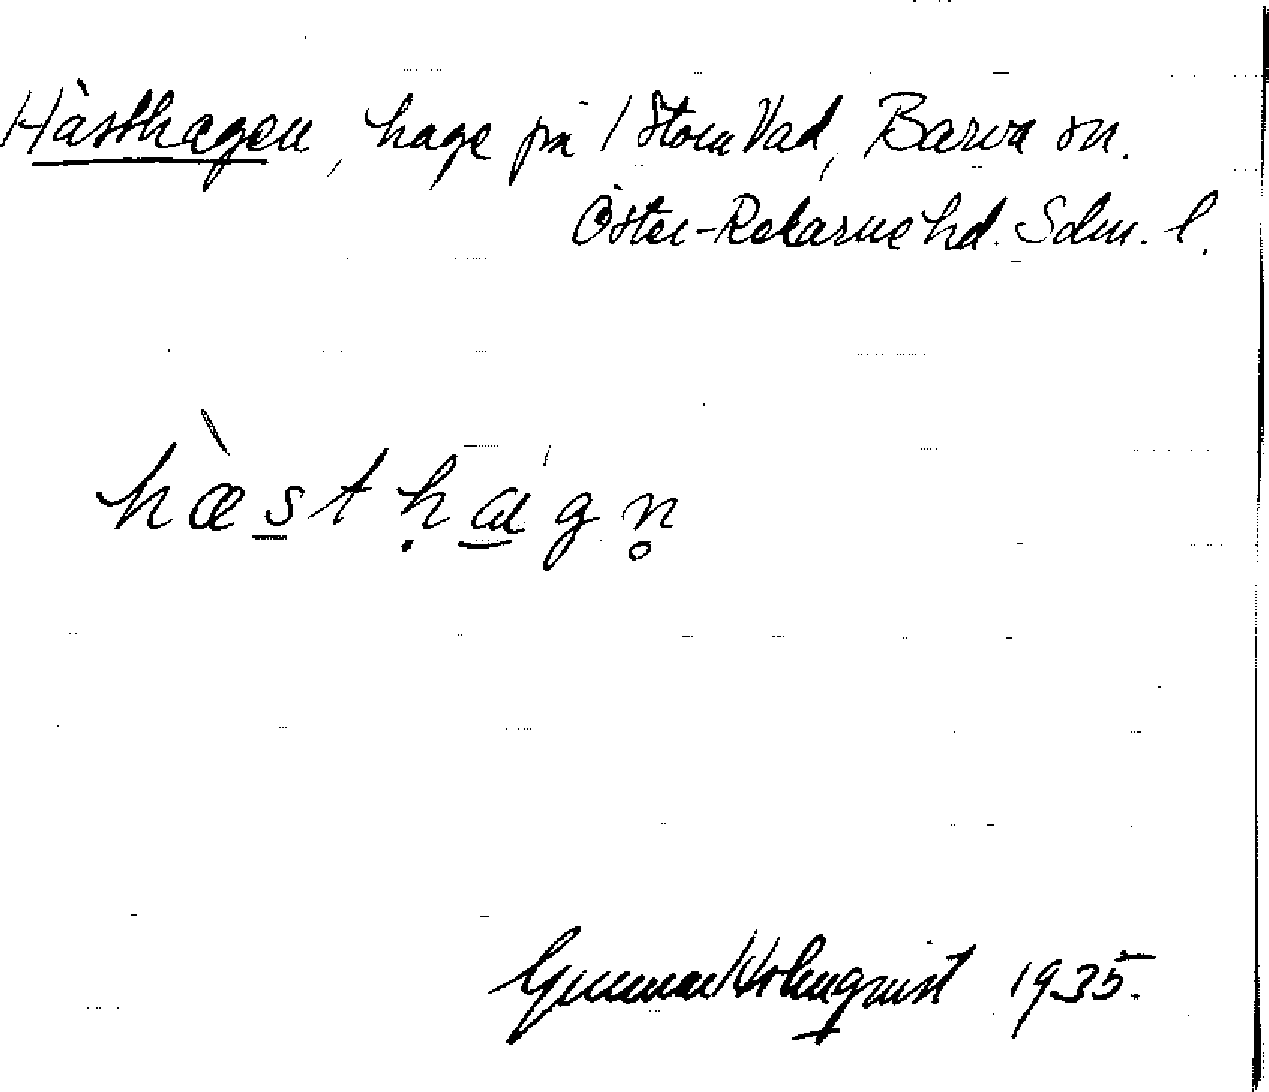 Hästhagen, hage på 1 Stora Vad, Barva sn.
Öster-Rekarne hd. Sdm. l.
hæ̀sthágn̥
Gunnar Holmqvist 1935.